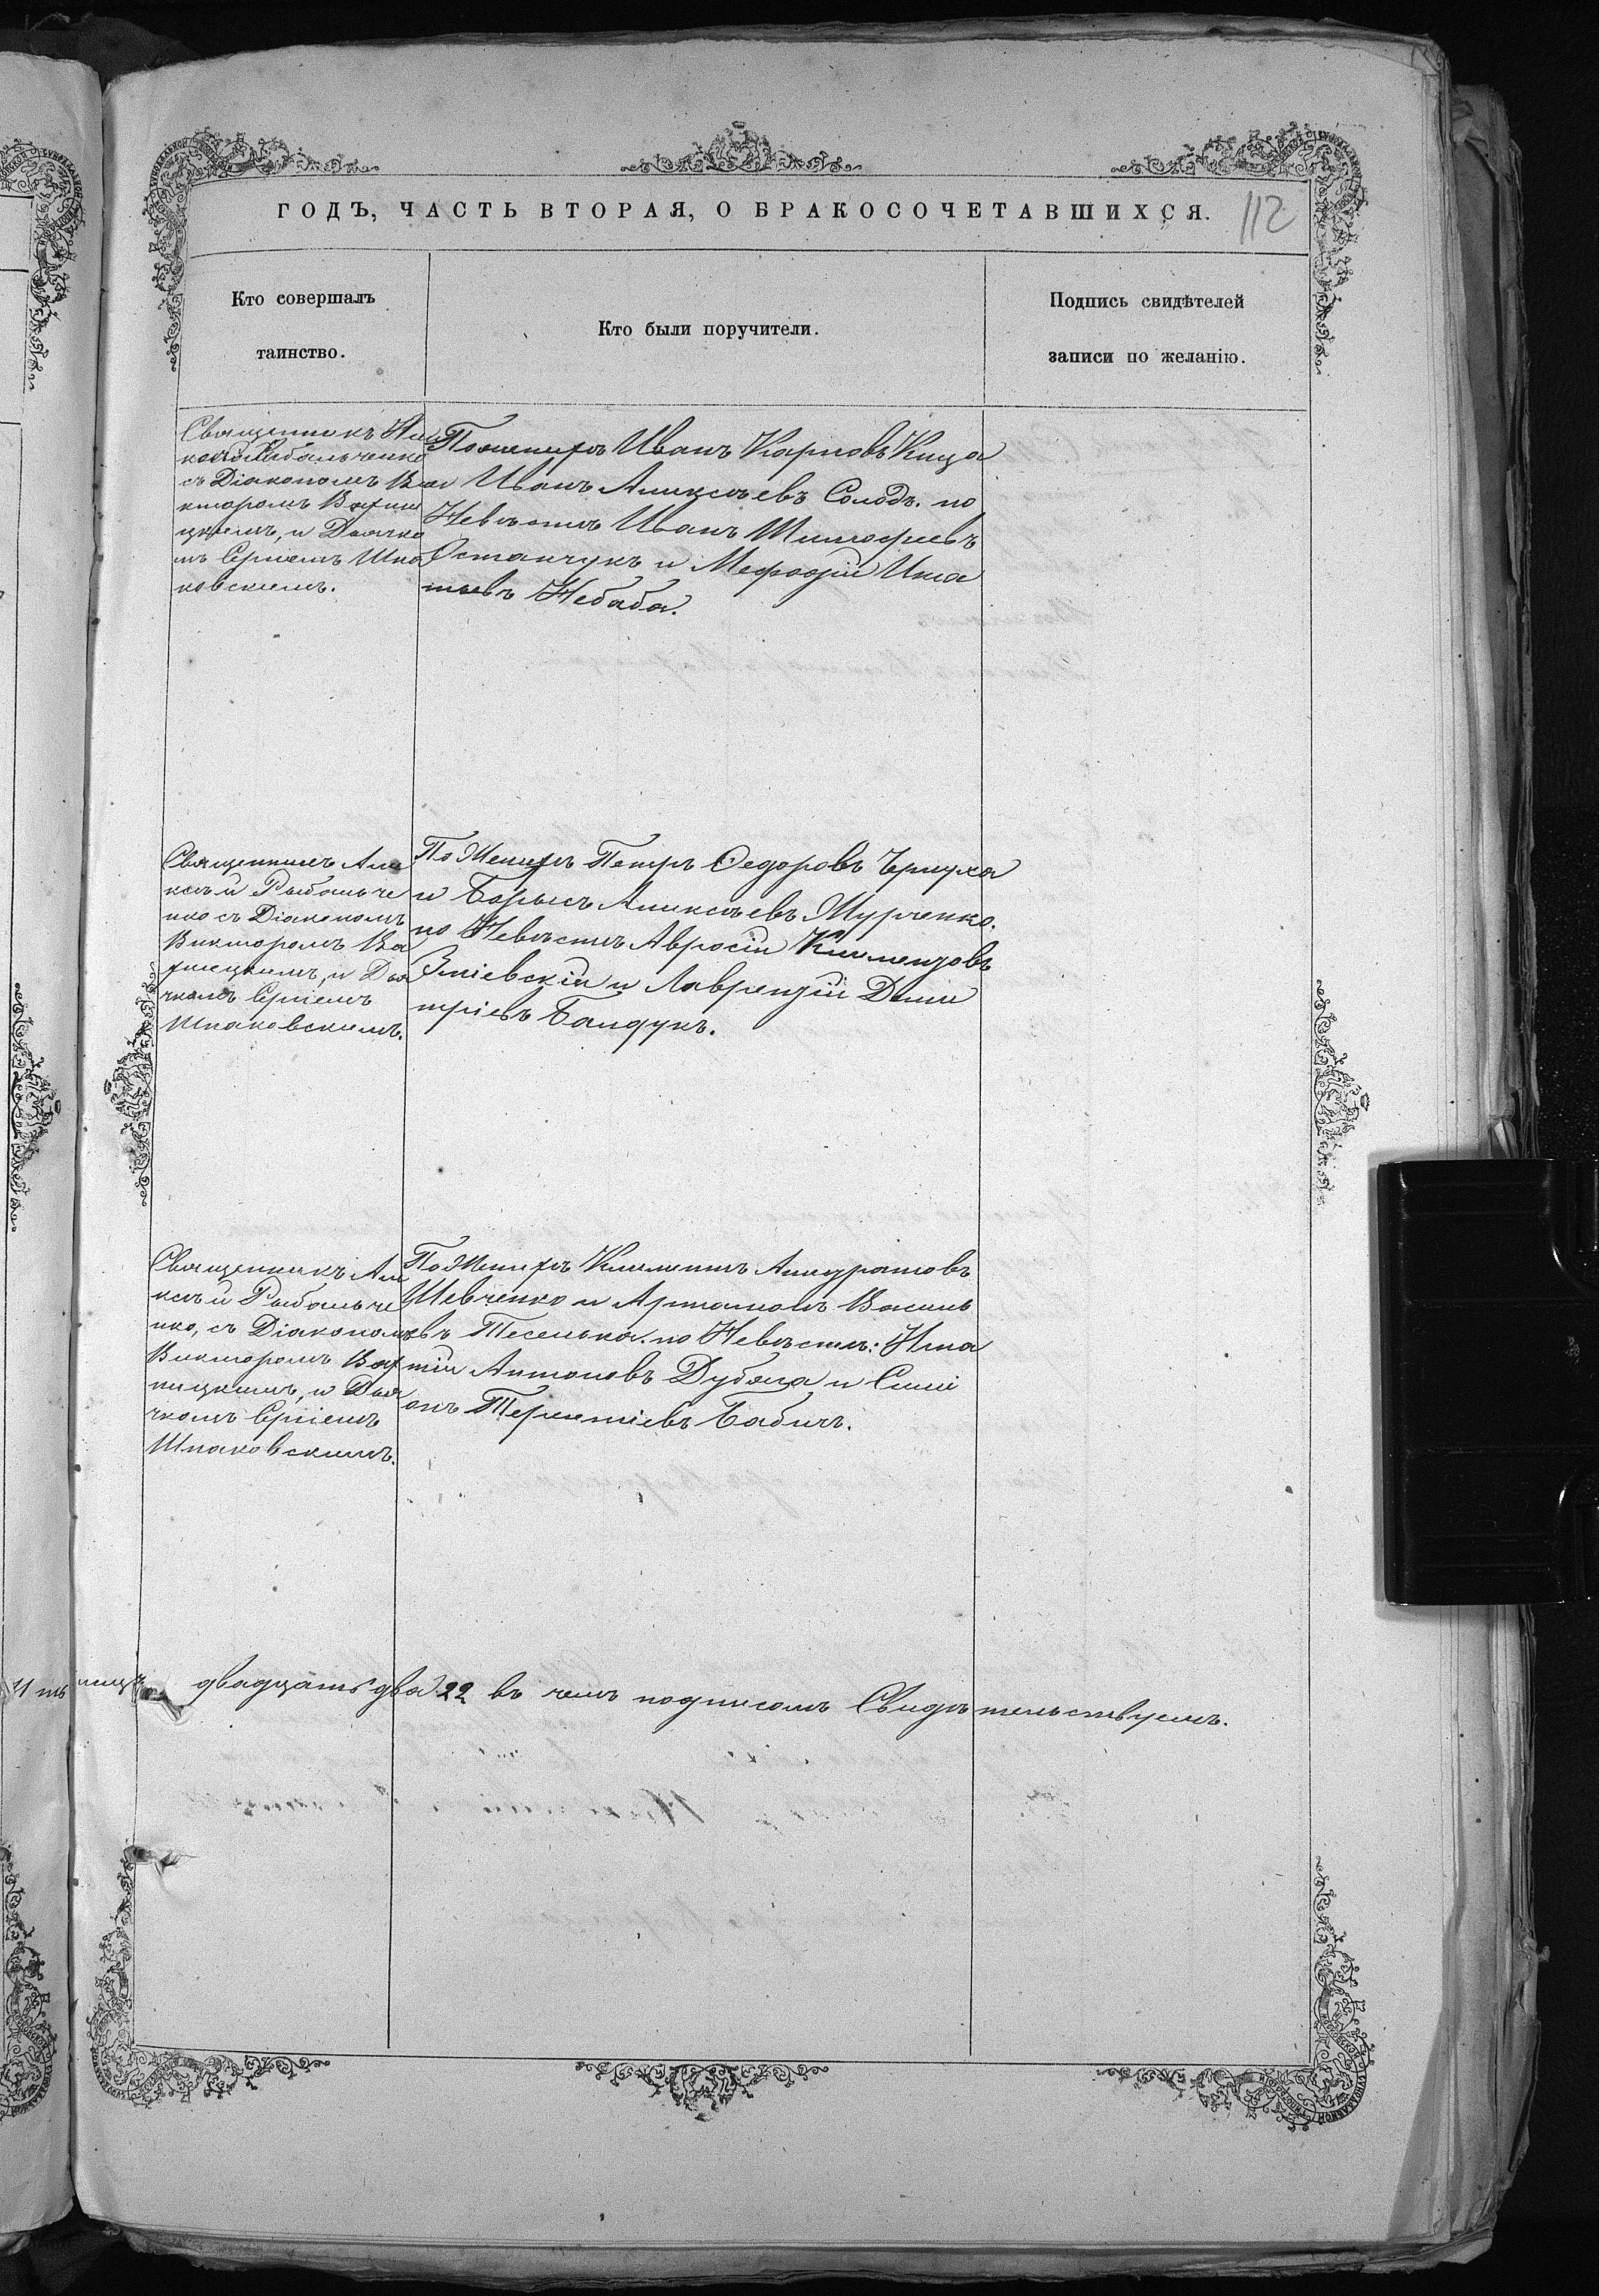 ГОДЪ, ЧАСТЬ ВТОРАЯ, О БРАКОСОЧЕТАВШИХСЯ.
112
Кто совершалъ
таинство.
Кто были поручители.
Подпись свидѣтелей
записи по желанію.
Священникъ
съ Діакономъ Ви
кторомъ
цкимъ, и Дьячко
мъ Сергіемъ Шпа
ковскимъ.
По жениху Иванъ Карповъ Кица
и Иванъ Алексѣевъ Солодъ. по
Невѣстѣ Иванъ Тимофеевъ
Остапчукъ и Мефодій Игна
тьевъ Небаба.
Священникъ Але
ксѣй Рыбальче
нко съ Діакономъ
Викторомъ Ва
и Дья
чкомъ Сергіемъ
Шпаковскимъ.
По Жениху Петръ Ѳедоровъ
и Борисъ Алексѣевъ Мурченко.
по Невѣстѣ Авросій Климентовъ
Зміевскій и Лаврентій Дими
тріевъ Бандукъ.
Священникъ Але
ксѣй Рыбальче
нко, съ Діакономъ
Викторомъ
ницкимъ, и Дья
чкомъ Сергіемъ
Шпаковскимъ.
По Жениху Климентъ
Шевченко и Артамонъ Василь
евъ Теселько. по Невѣстѣ: Игна
тій Антоновъ Дубяга и Симе
онъ Терентіевъ Бабичъ.
двадцать два 22 въ чемъ подписомъ Свидѣтельствуемъ.